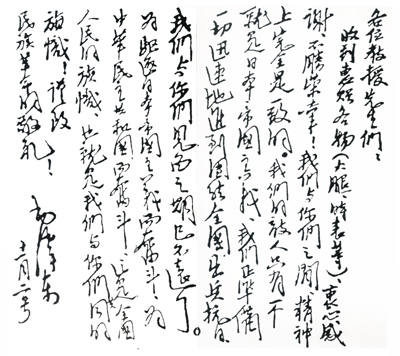 各位教授先生们：
收到惠赠各物（火腿時表等），衷心感
謝，不勝榮幸！我们与你们之間，精神
上完全是一致的。我们的敌人只有一个
就是日本帝國主义，我们正準備
一切迅速地進到團结全國出兵抗日，
我们与你们見面之期已不遠了。
为驱逐日本帝國主义而奮斗，为
中華民主共和國而奮斗，这是全國
人民的旗幟，也就是我们与你们共同的
旗幟！谨致
民族革命的敬礼！
毛澤東
十一月二号